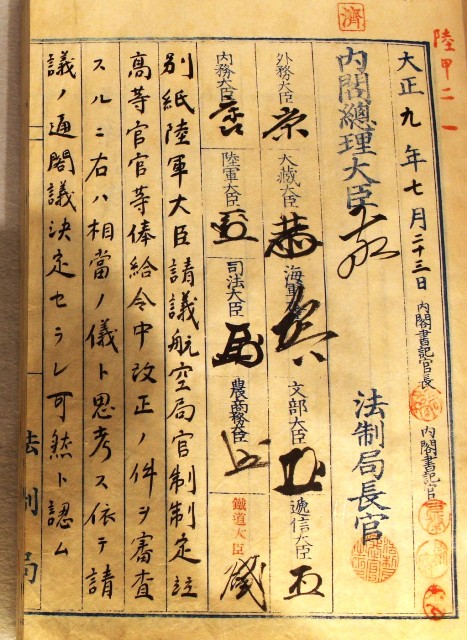 濟
陸甲二一
大正九年七月二十三日
内閣書記官長
内閣書記官
内閣總理大臣
法制局長官
外務大臣
大藏大臣
海軍大臣
文部大臣
遞信大臣
内務大臣
陸軍大臣
司法大臣
農商務大臣
鐵道大臣
別紙陸軍大臣請議航空局官制制定竝
高等官官等俸給令中改正ノ件ヲ審査
スルニ右ハ相當ノ儀ト思考ス依テ請
議ノ通閣議決定セラレ可然ト認ム
法制局